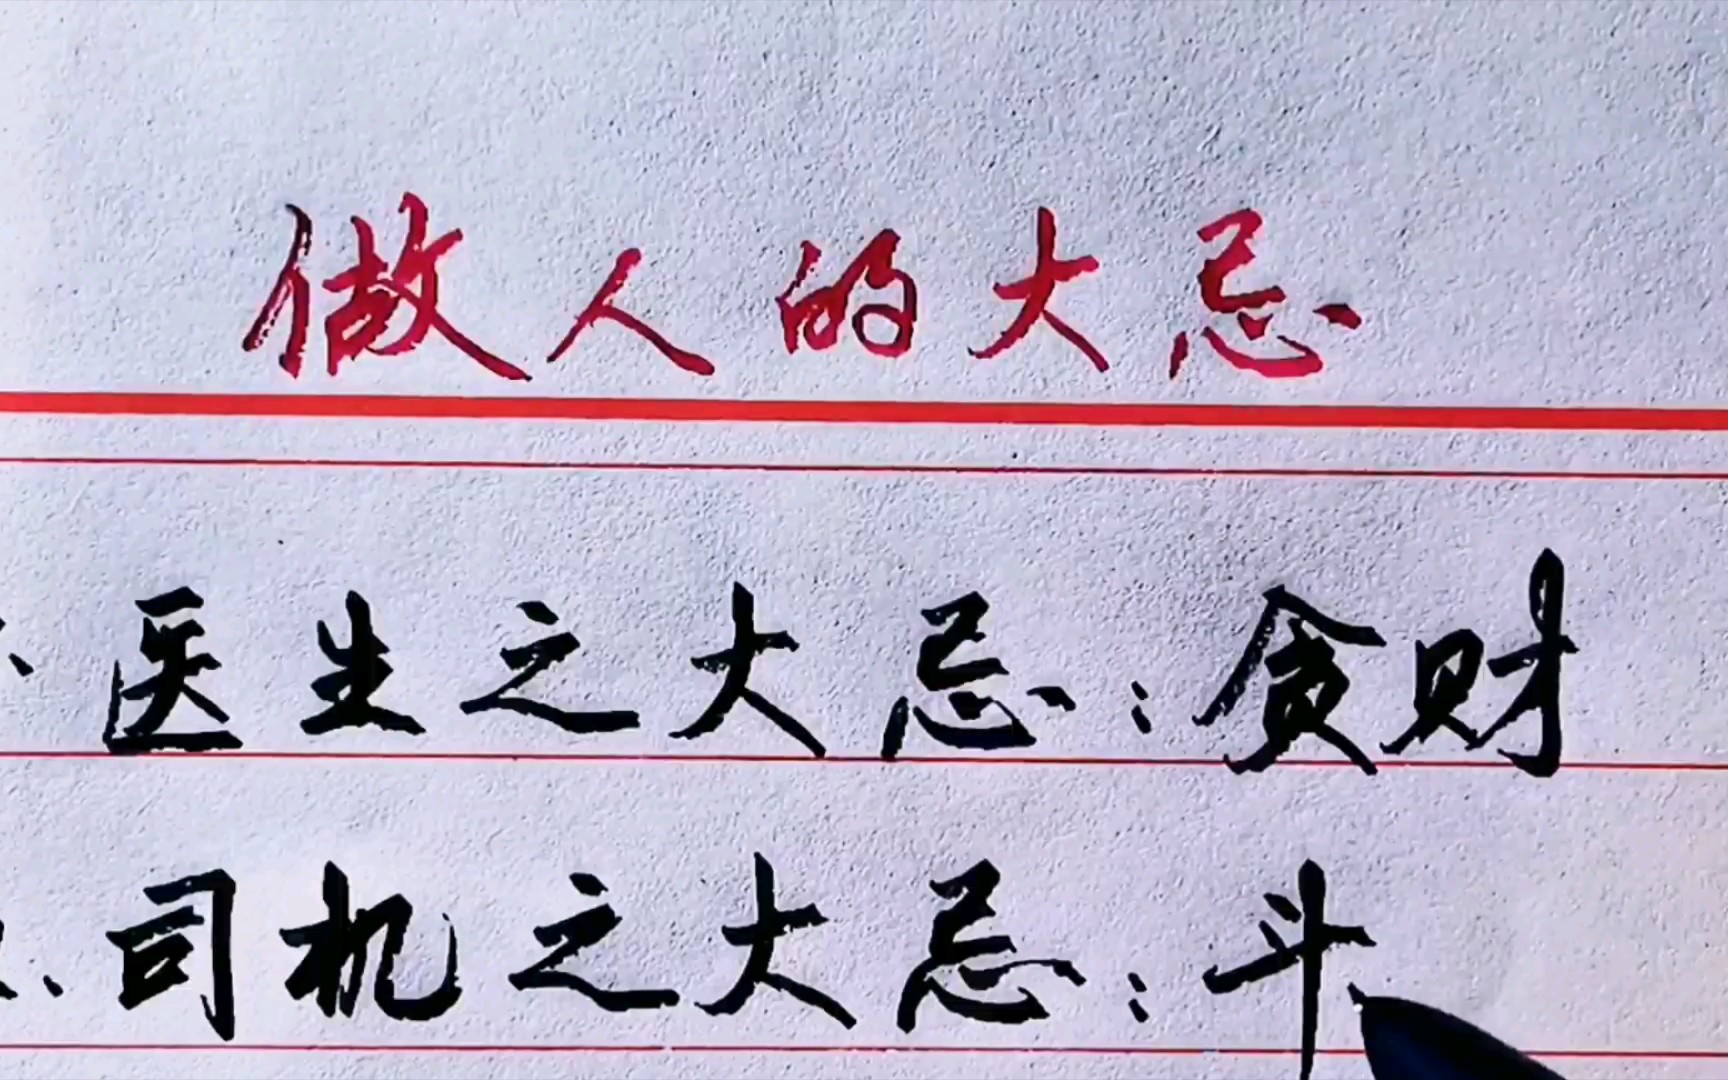 做人的大忌
、医生之大忌:贪财
、司机之大忌:斗